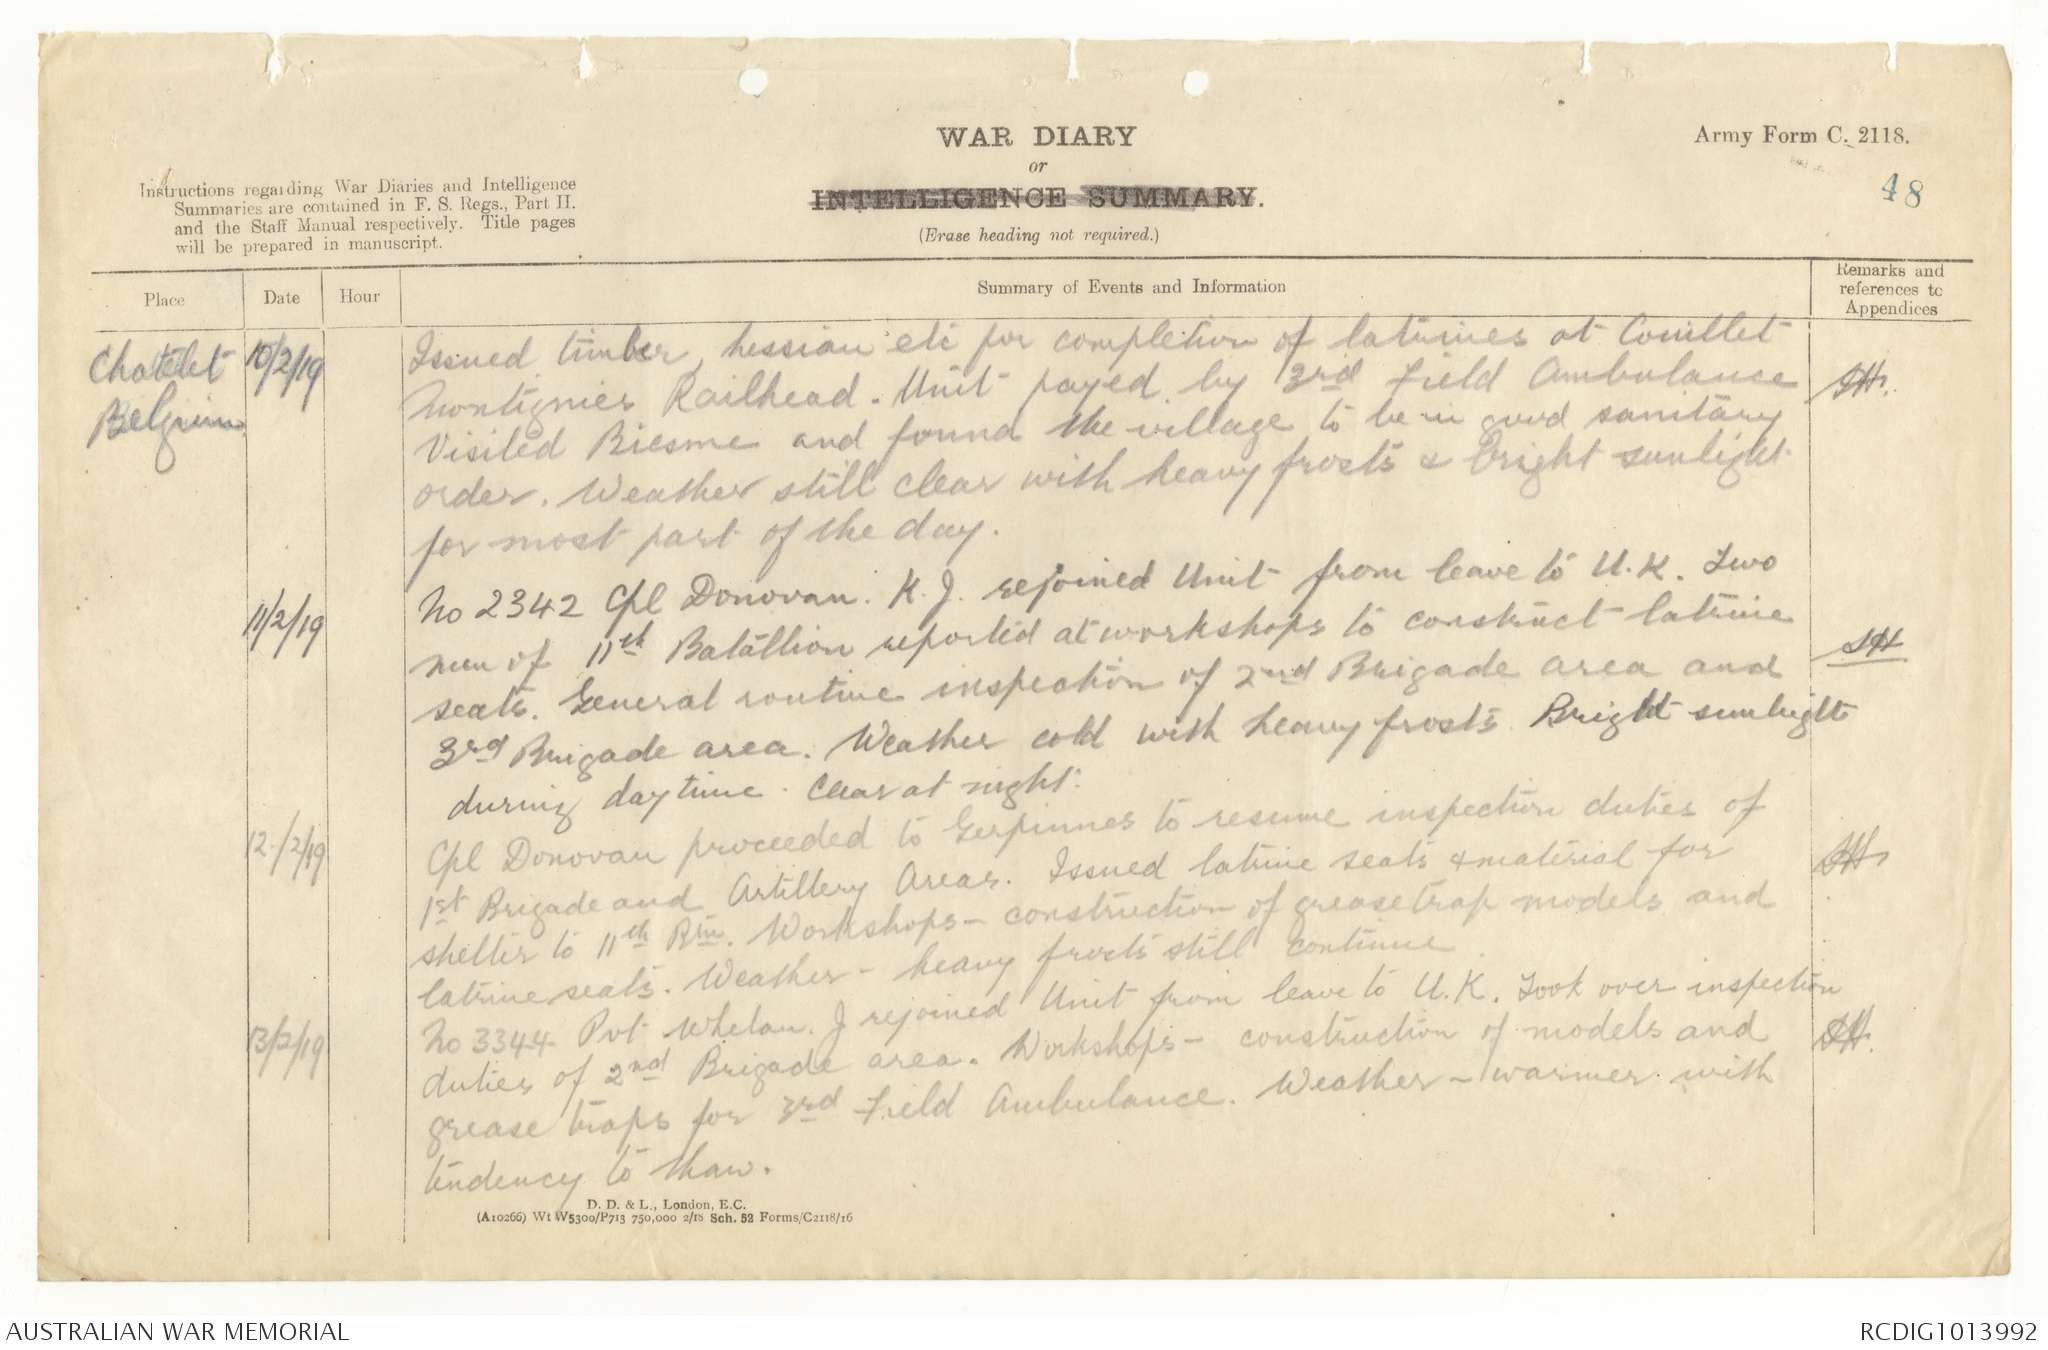 WAR DIARY
or
INTELLIGENCE SUMMARY.
(Erase heading not required.)
Army Form C. 2118.
48
Instructions regarding War Diaries and Intelligence
Summaries are contained in F. S. Regs., Part II.
and the Staff Manual respectively. Title pages
will be prepared in manuscript.
Place
Date
Hour
Summary of Events and Information
Remarks and
references to
Appendices
Chatelet
Belgium
10/2/19
Issued timber, hessian etc for completion of latrines at Couillet
Montignies Railhead. Unit payed by 3rd Field Ambulance
Visited Biesme and found the village to be in good sanitary
order. Weather still clear with heavy frosts & bright sunlight
for most part of the day.
11/2/19
No 2342 Cpl Donovan. K. J. rejoined Unit from leave to U.K. Two
men of 11th Batallion reported at workshops to construct latrine
seats. General routine inspection of 2nd Brigade area and
3rd Brigade area. Weather cold with heavy frosts. Bright sunlight
during day time. Clear at night.
12/2/19
Cpl Donovan proceeded to Gerpinnes to resume inspection duties of
1st Brigade and Artillery Areas. Issued latrine seats & material for
shelter to 11th Bn. Workshops - construction of grease trap models and
latrine seats. Weather - heavy frosts still continue
13/2/19
No 3344 Pvt Whelan. J rejoined Unit from leave to U.K. Took over inspection
duties of 2nd Brigade area. Workshops - construction of models and
grease traps for 3rd Field Ambulance. Weather - warmer with
tendency to thaw.
D. D. & L., London, E.C.
(A10266) Wt W5300/P713 750,000 2/18 Sch. 52 Forms/C2118/16
AUSTRALIAN WAR MEMORIAL
RCDIG1013992